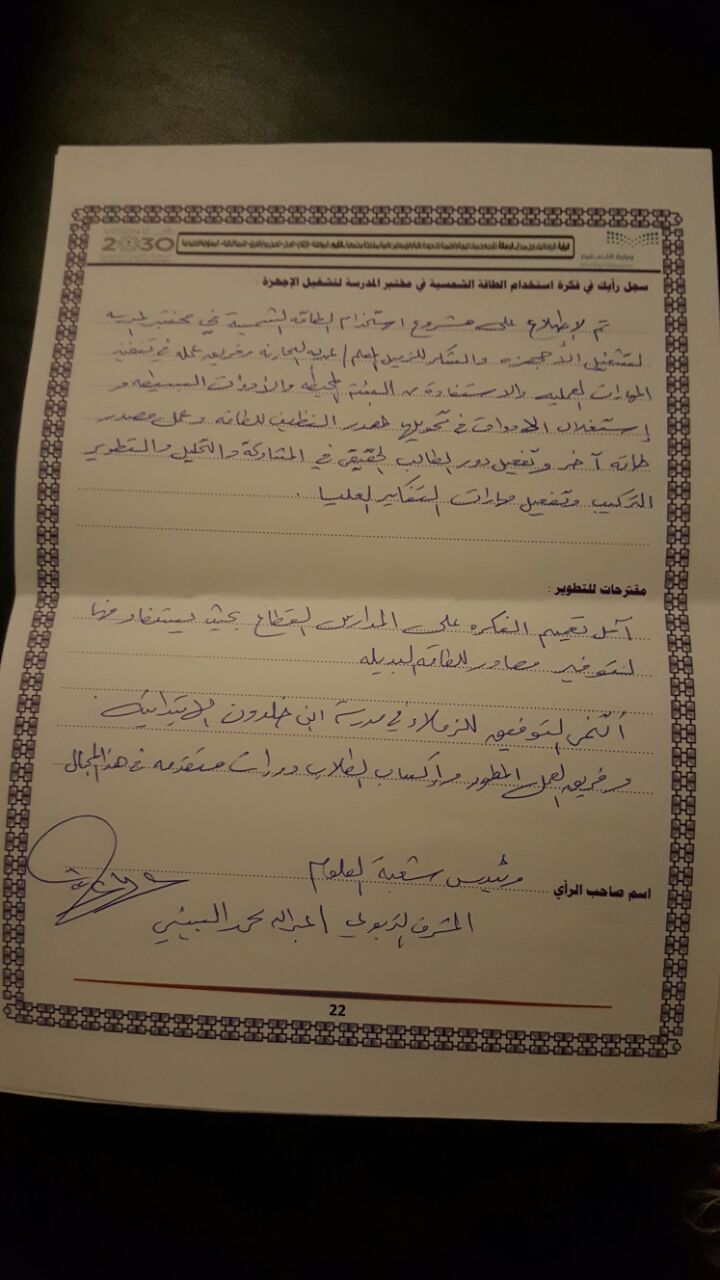 VISION رؤية
2030
وزارة التعليم
سجل رأيك في فكرة استخدام الطاقة الشمسية في مختبر المدرسة لتشغيل الأجهزة :
تم لإطلاع على مشروع استخدام الطاقه الشمسية في مختبر المدرسه
لتشغيل الأجهزه والشكر للزميل المعلم / وفريق عمله في تنفيذ
المهارات العمليه والاستفادة من البيئة المحيطه والأدوات البسيطه و
إستغلال الادوات في تحويلها لمصدر النظيف للطاقه وعمل مصدر
طاقه آخر وتفعيل دور الطالب الحقيقي في المشاركة والتحليل والتطوير
التركيب وتفعيل مهارات التفكير العليا .
مقترحات للتطوير :
آمل تعميم الفكره على المدارس القطاع بحيث يستفاد منها
لتوفير مصادر للطاقه البديله
أتمنى التوفيق للزملاء في مدرسة ابن خلدون الابتدائية
وفريق العمل المطور وإكساب الطلاب متقدمه في هذا المجال
رئيس شعبة العلوم
اسم صاحب الرأي
المشرف التربوي / عبدالله محمد
22